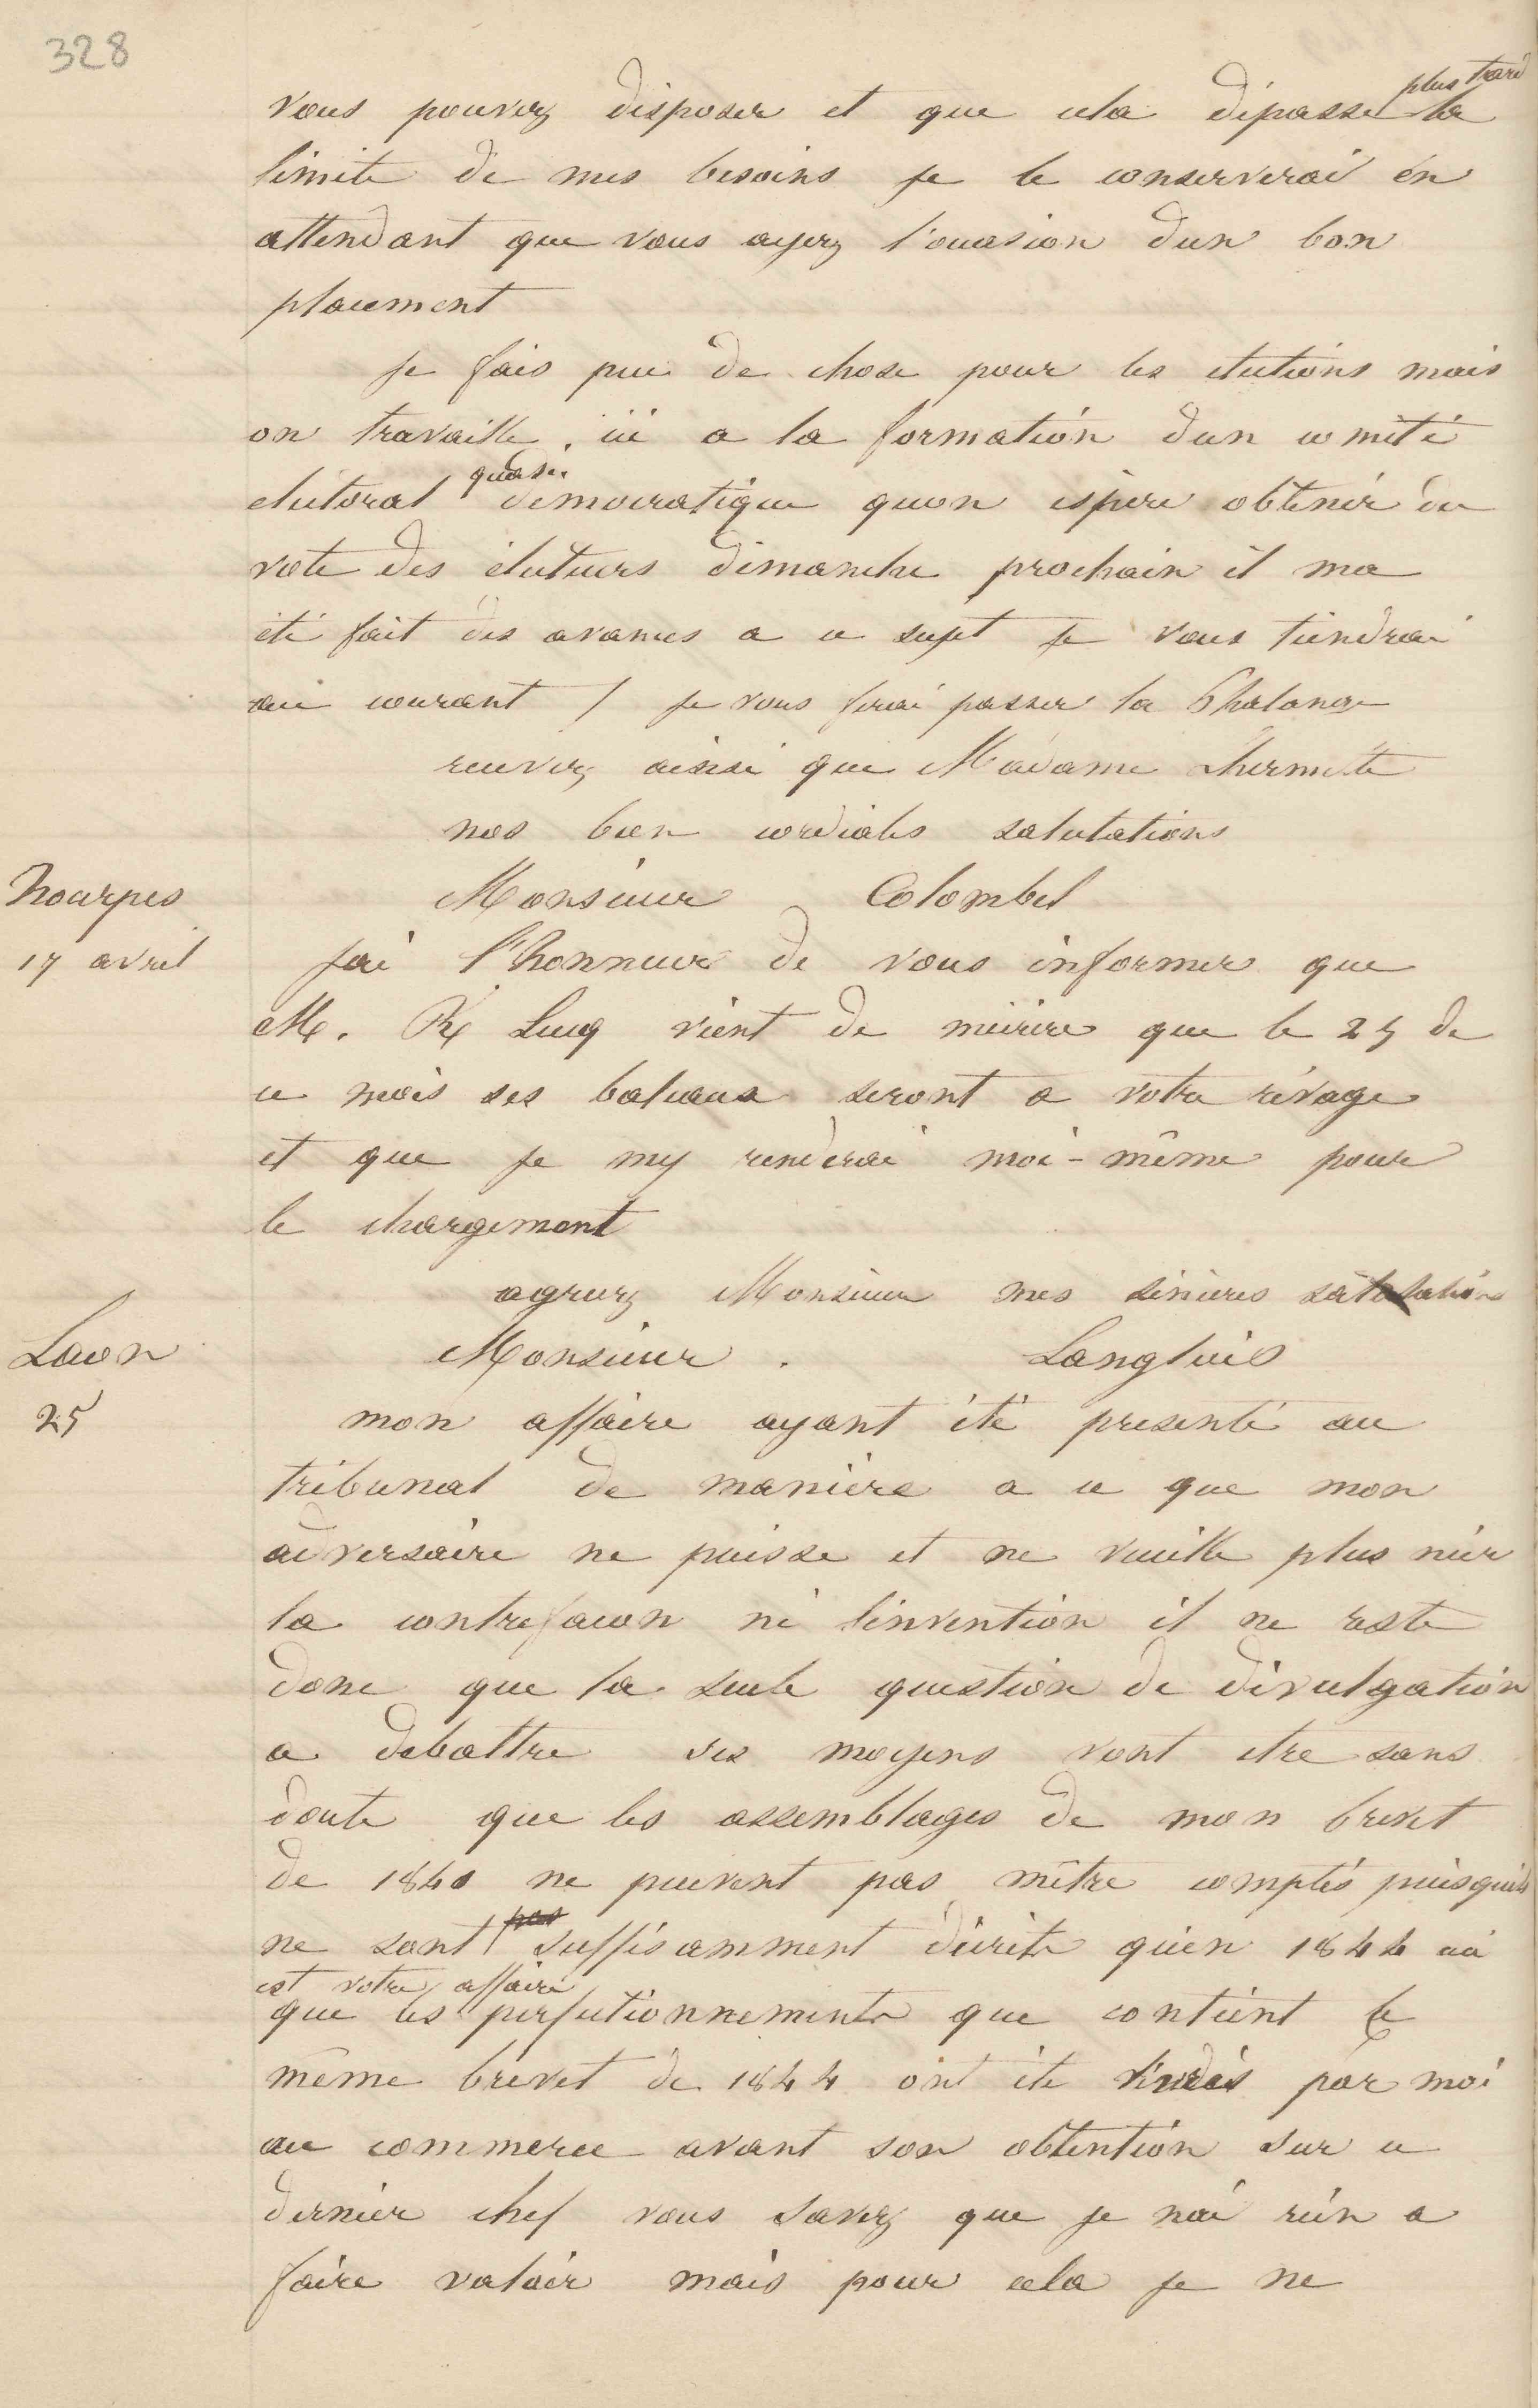 328
vous pouvez disposer et que cela dépasse plus tard la
limite de mes besoins je le conserverai en
attendant que vous ayez l'occasion dun bon
placement
je fais peu de chose pour les elections mais
on travaille ici a la formation dun comité
electoral quasi democratique quon espere obtenir du
vote des électeurs dimanche prochain il ma
été fait des avances a ce sujet je vous tiendrai
au courant / je vous ferai passer la Phalange
recevez ainsi que Madame Lhermitte
nos bien cordiales salutations
Monsieur Colombel
Nourpes
17 avril
jai l'honneur de vous informer que
M. Lucq vient de mécrire que le 25 de
ce mois ses bateaux seront a votre rivage
et que je my renderai moi-même pour
le chargement
agreez Monsieur mes sincères salutations
Laon
25
Monsieur . Langlois
mon affaire ayant été presenté au
tribunal de manière a ce que mon
adversaire ne puisse et ne veuille plus nier
la contrefacon ni linvention il ne reste
donc que la seule question de divulgation
a debattre ses moyens vont etre sans
doute que les assemblages de mon brevet
de 1840 ne peuvent pas mêtre comptés puisquils
ne sont pas suffisamment décrits quen 1844 ceci
est votre affaire
que les perfectionnements que contient le
même brevet de 1844 ont été vendus par moi
au commerce avant son obtention sur ce
dernier chef vous savez que je nai rien a
faire valoir mais pour cela je ne